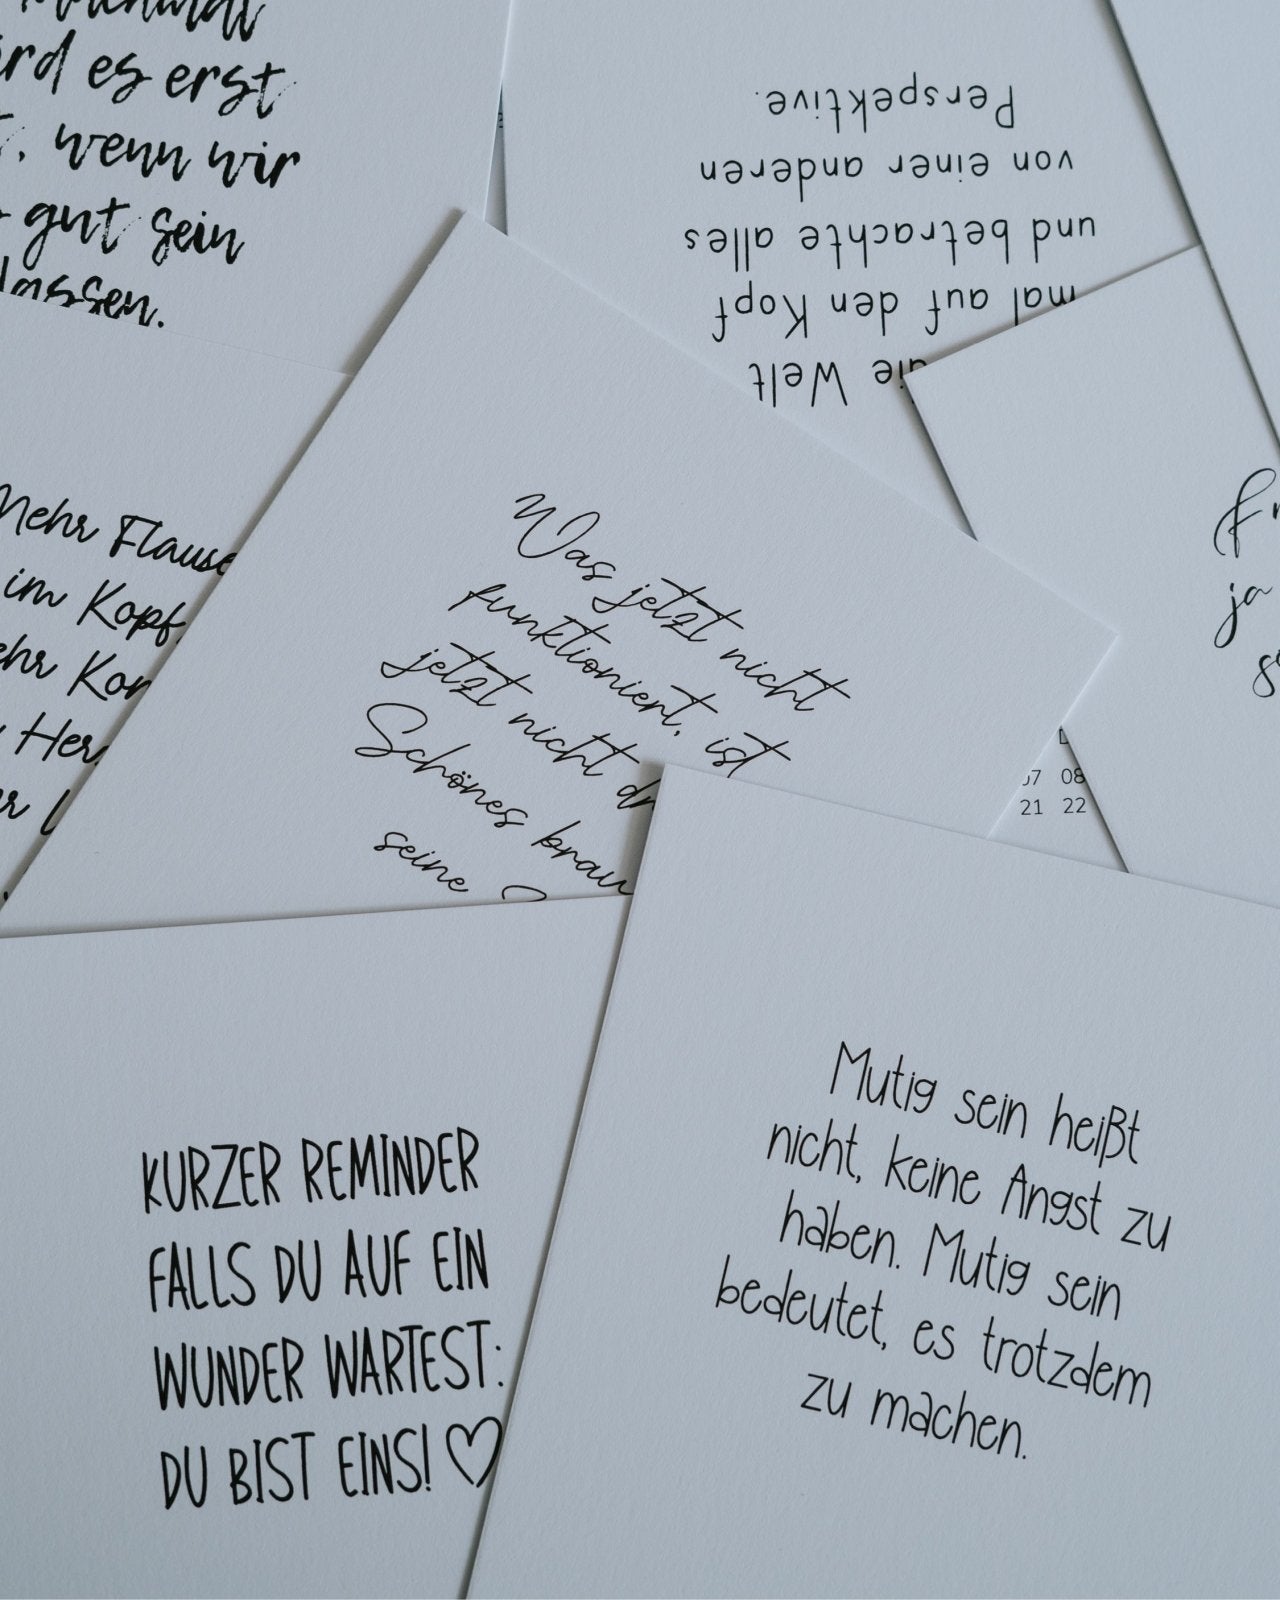 es erst
wenn wir
gut sein
lassen.
Welt
mal auf den Kopf
und betrachte alles
von einer anderen
Perspektive.
Mehr
im Kopf,
Was jetzt nicht
funktioniert, ist
jetzt nicht
Schönes
seine
ja
08
21 22
KURZER REMINDER
FALLS DU AUF EIN
WUNDER WARTEST:
DU BIST EINS! ♡
Mutig sein heißt
nicht, keine Angst zu
haben. Mutig sein
bedeutet, es trotzdem
zu machen.